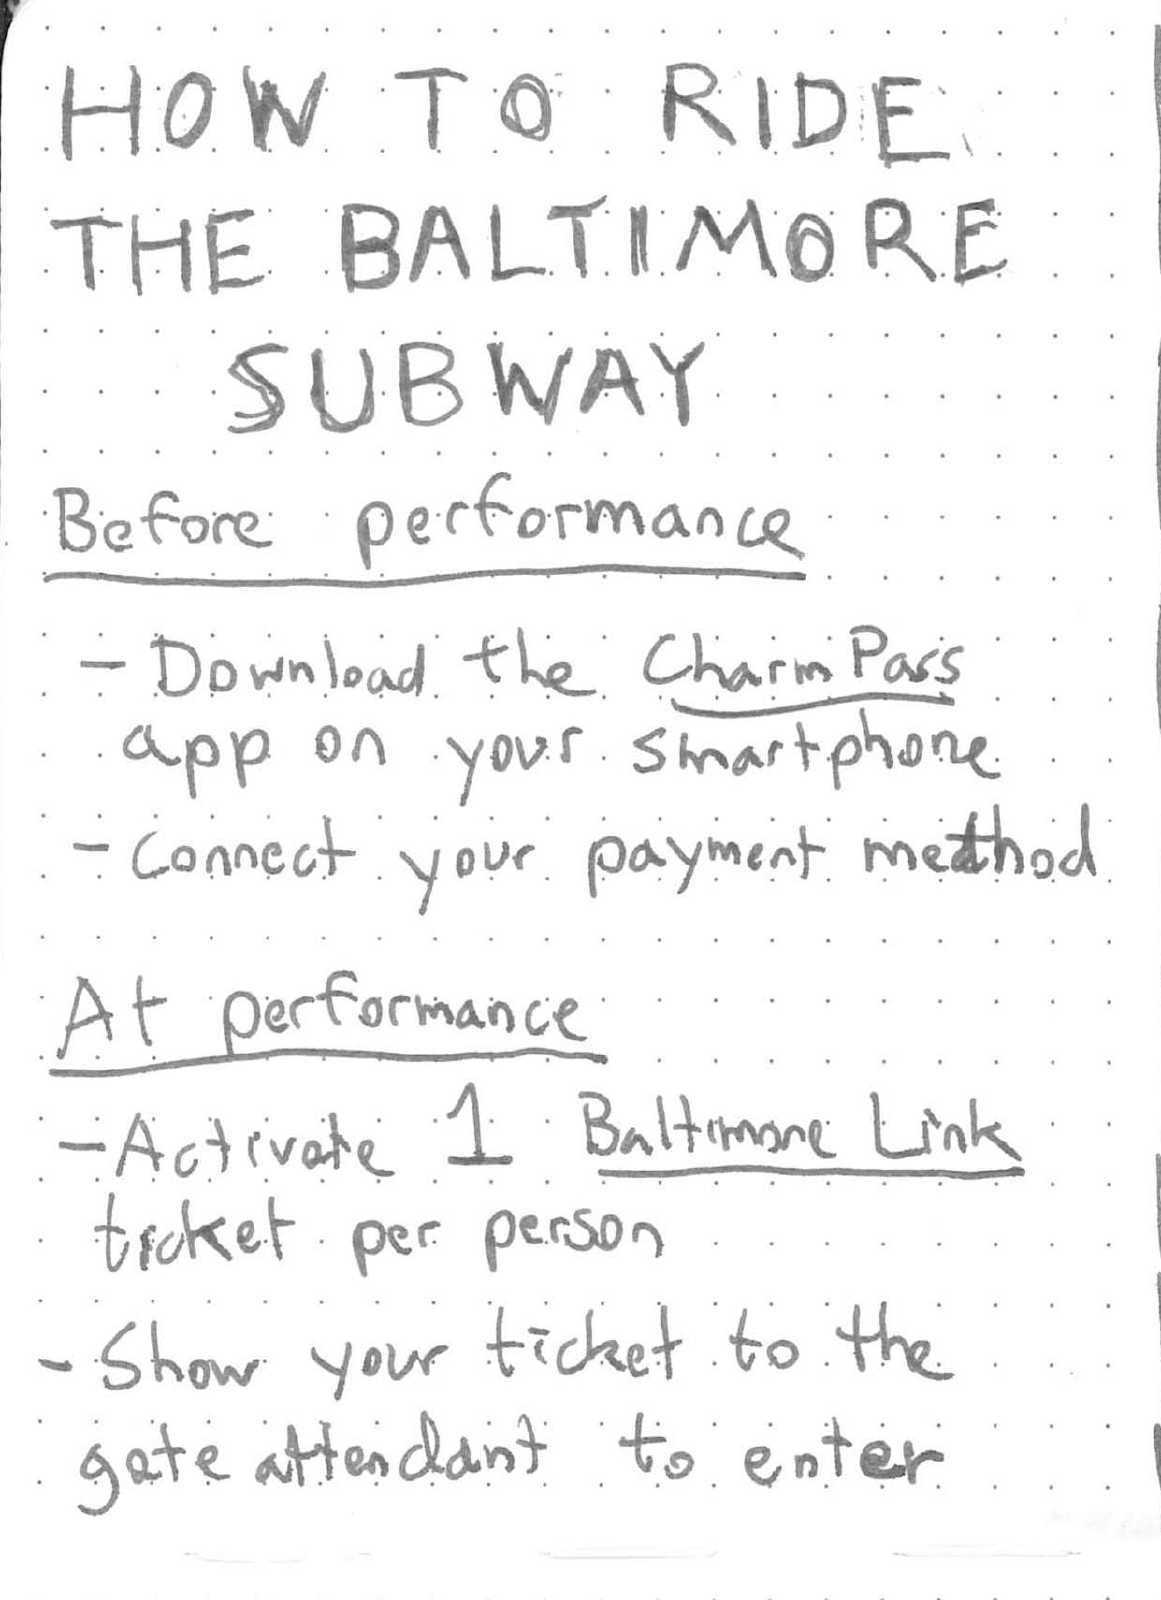 HOW TO RIDE
THE BALTIMORE
SUBWAY
Before performance
- Download the CharmPass
app on your smartphone
- Connect your payment method
At performance
- Activate 1 Baltimore Link
ticket per person
- Show your ticket to the
gate attendant to enter